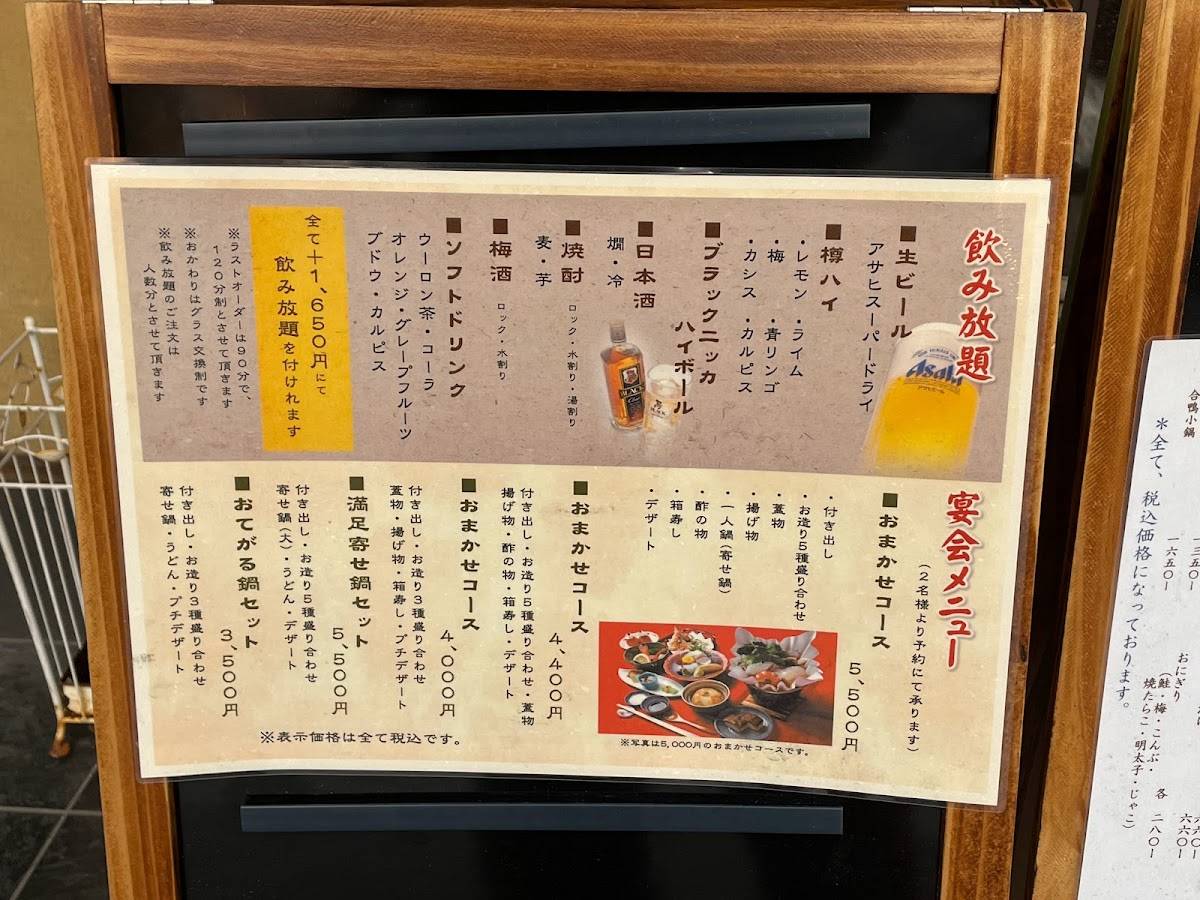 飲み放題
■生ビール
アサヒスーパードライ
■樽ハイ
・レモン・ライム
・梅・青リンゴ
・カシス・カルピス
■ブラックニッカ
ハイボール
■日本酒
燗・冷
■焼酎 ロック・水割り・湯割り
麦・芋
■梅酒 ロック・水割り
■ソフトドリンク
ウーロン茶・コーラ
オレンジ・グレープフルーツ
ブドウ・カルピス
全て+1,650円にて
飲み放題を付けれます
※ラストオーダーは90分で、
120分制とさせて頂きます
※おかわりはグラス交換制です
※飲み放題のご注文は
人数分とさせて頂きます
Asahi
BLACK
宴会メニュー
(2名様より予約にて承ります)
■おまかせコース 5,500円
・付き出し
・お造り5種盛り合わせ
・蓋物
・揚げ物
・一人鍋(寄せ鍋)
・酢の物
・箱寿し
・デザート
※写真は5,000円のおまかせコースです。
■おまかせコース 4,400円
付き出し・お造り5種盛り合わせ・蓋物
揚げ物・酢の物・箱寿し・デザート
■おまかせコース 4,000円
付き出し・お造り3種盛り合わせ
蓋物・揚げ物・箱寿し・プチデザート
■満足寄せ鍋セット 5,500円
付き出し・お造り5種盛り合わせ
寄せ鍋(大)・うどん・デザート
■おてがる鍋セット 3,500円
付き出し・お造り3種盛り合わせ
寄せ鍋・うどん・プチデザート
※表示価格は全て税込です。
合鴨小鍋
一三五〇-
一六五〇-
おにぎり
(鮭・梅・こんぶ・ 各 二八〇-
焼たらこ・明太子・じゃこ)
六六〇-
*全て、税込価格になっております。